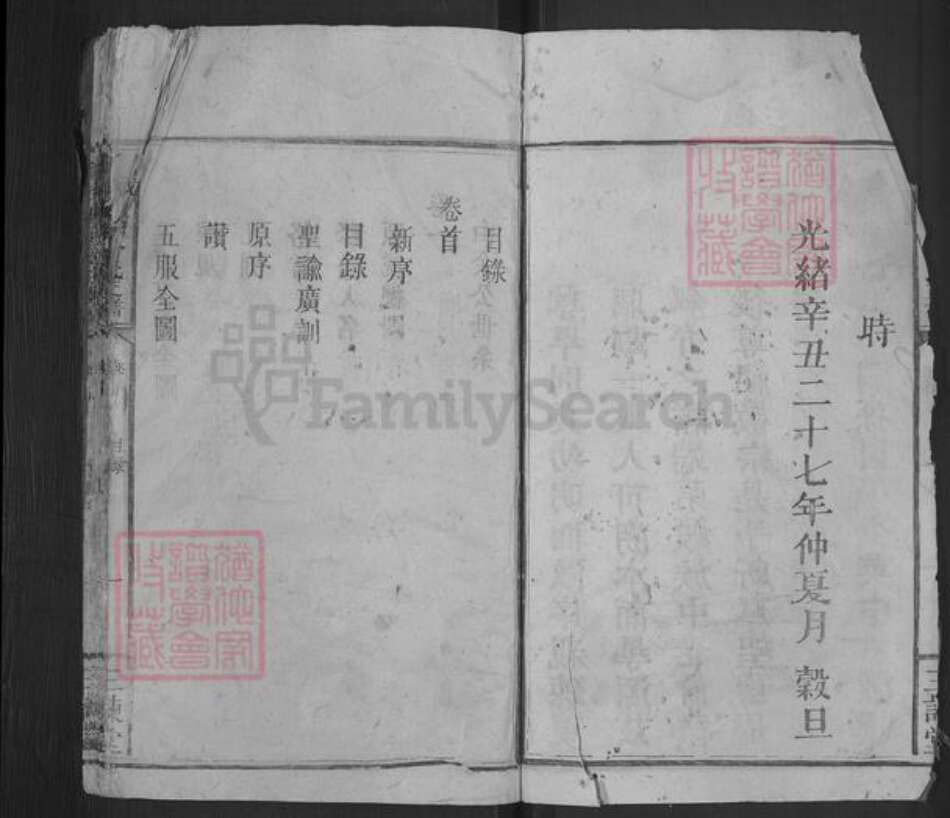 時
光緒辛丑二十七年仲夏月 穀旦
目錄
卷首
新序
目錄
聖諭廣訓
原序
讃
五服全圖
猶他家譜學會收藏
猶他家譜學會收藏
FamilySearch